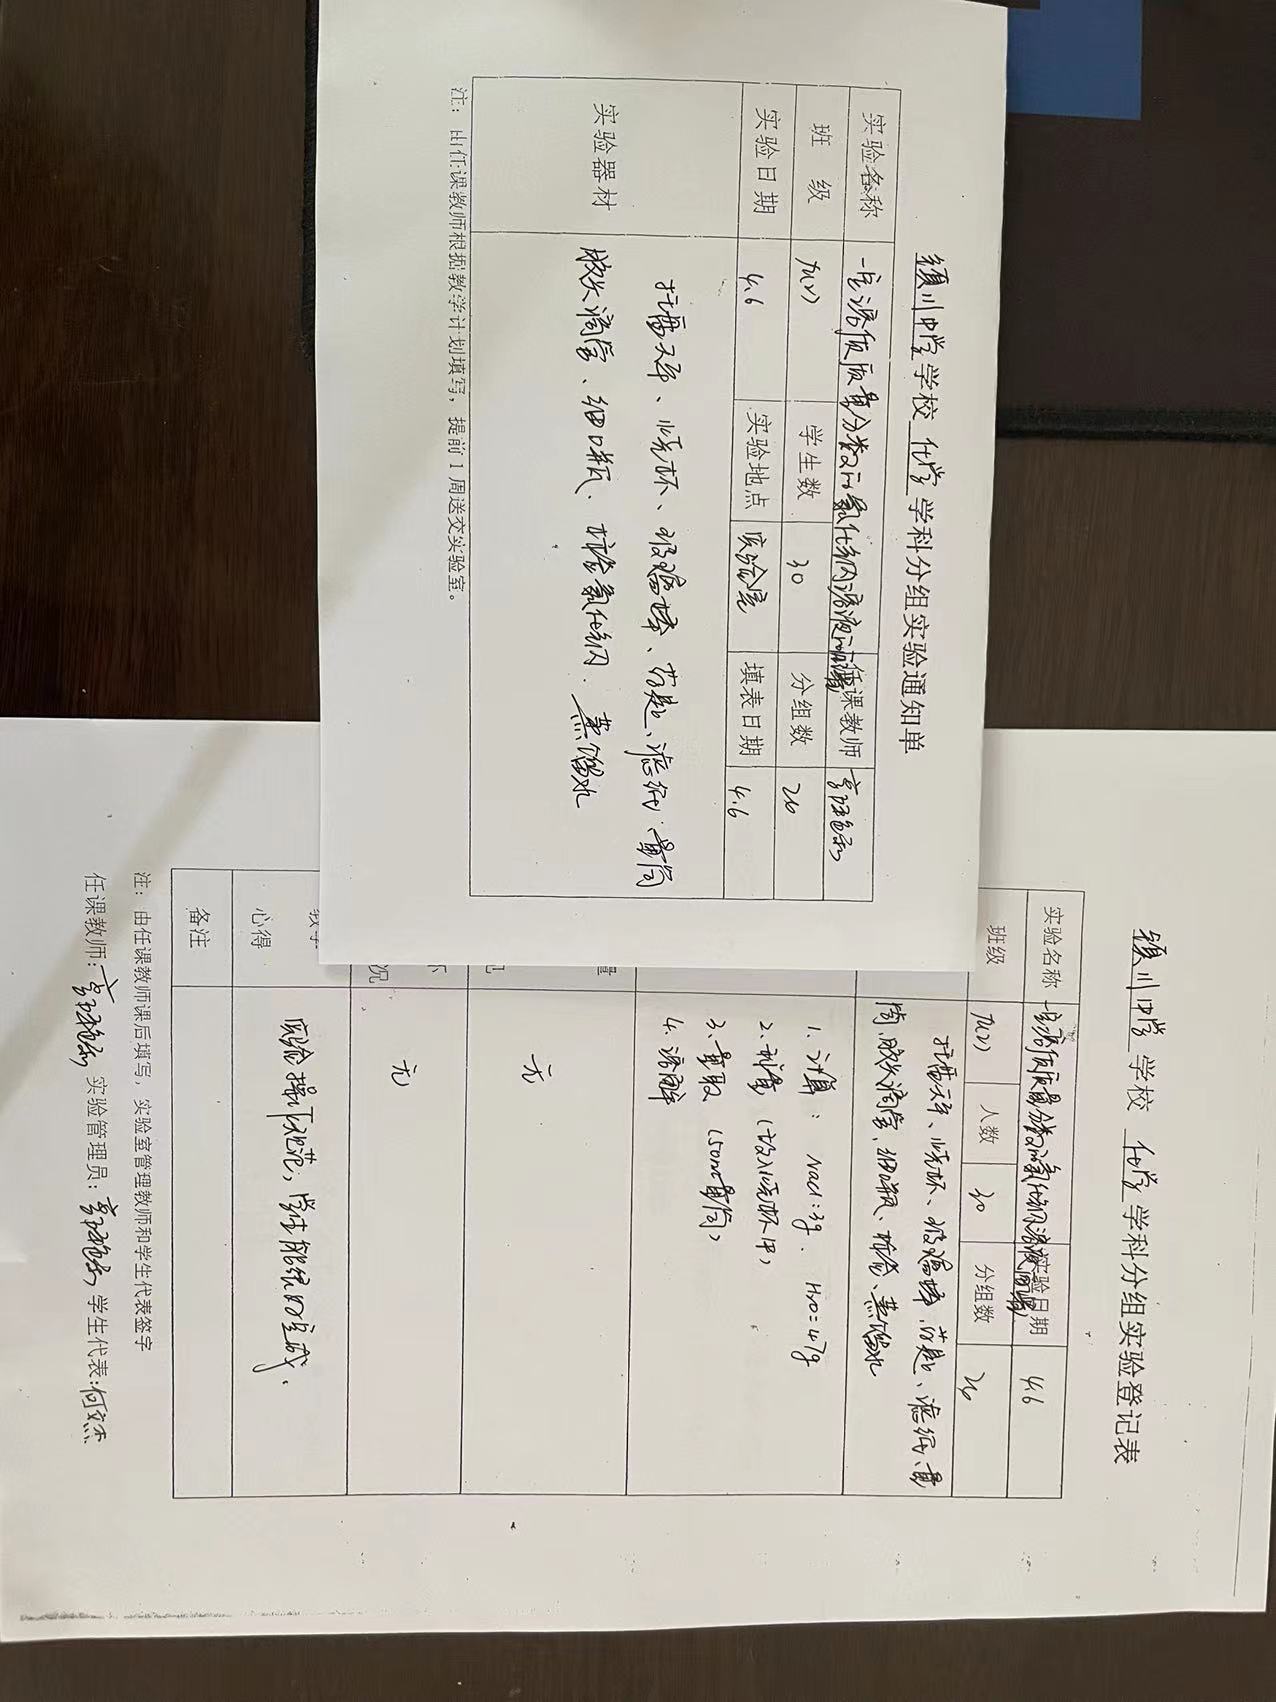 颍川中学学校 化学 学科分组实验通知单
实验名称 一定溶质质量分数的氯化钠溶液的配制 任课教师
班 级 九(2) 学生数 30 分组数 26
实验日期 4.6 实验地点 实验室 填表日期 4.6
实验器材
托盘天平、烧杯、玻璃棒、药匙、滤纸、量筒
胶头滴管、细口瓶、 氯化钠、蒸馏水
注：由任课教师根据教学计划填写，提前1周送交实验室。
颍川中学 学校 化学 学科分组实验登记表
实验名称 一定溶质质量分数的氯化钠溶液 实验日期 4.6
班级 九(2) 人数 30 分组数 26
托盘天平、烧杯、玻璃棒、药匙、滤纸、量
筒、胶头滴管、细口瓶、 蒸馏水
1. 计算： Nacl：3g. H2O=47g
2. 称量 (放入烧杯中)
3. 量取 (50ml量筒)
4. 溶解
无
况 无
心得 实验操作规范，学生能 完成.
备注
注：由任课教师课后填写，实验室管理教师和学生代表签字
任课教师: 实验管理员: 学生代表:何